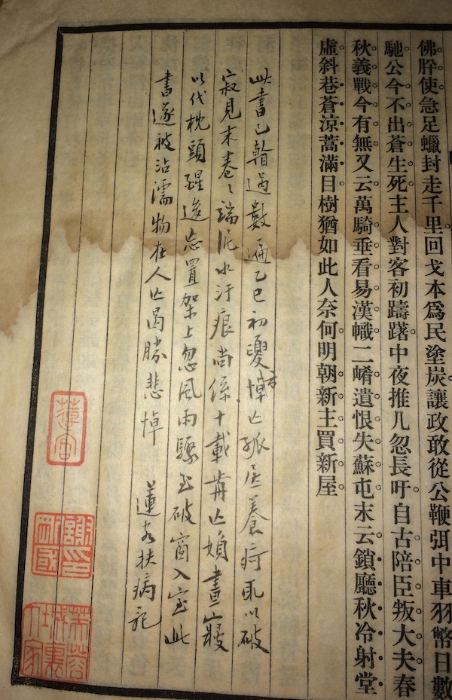 佛肸使急足蠟封走千里回戈本爲民塗炭讓政敢從公鞭弭中車羽幣日數
馳公今不出蒼生死主人對客初躊躇中夜推几忽長吁自古陪臣叛大夫春
秋義戰今有無又云萬騎垂看易漢幟二崤遺恨失蘇屯末云鎖廳秋冷射堂
虛斜巷蒼涼蒿滿目樹猶如此人奈何明朝新主買新屋
此書已翰過數遍乙巳初夏悼亡孤居養疴取以破
寂見末卷之端泥水汙痕尚係十載前亡婦晝寢
以代枕頭醒後忘置架上忽風雨驟至破窗入室此
書遂被沾濡物在人亡曷勝悲悼
蓮客扶病記
蓮客